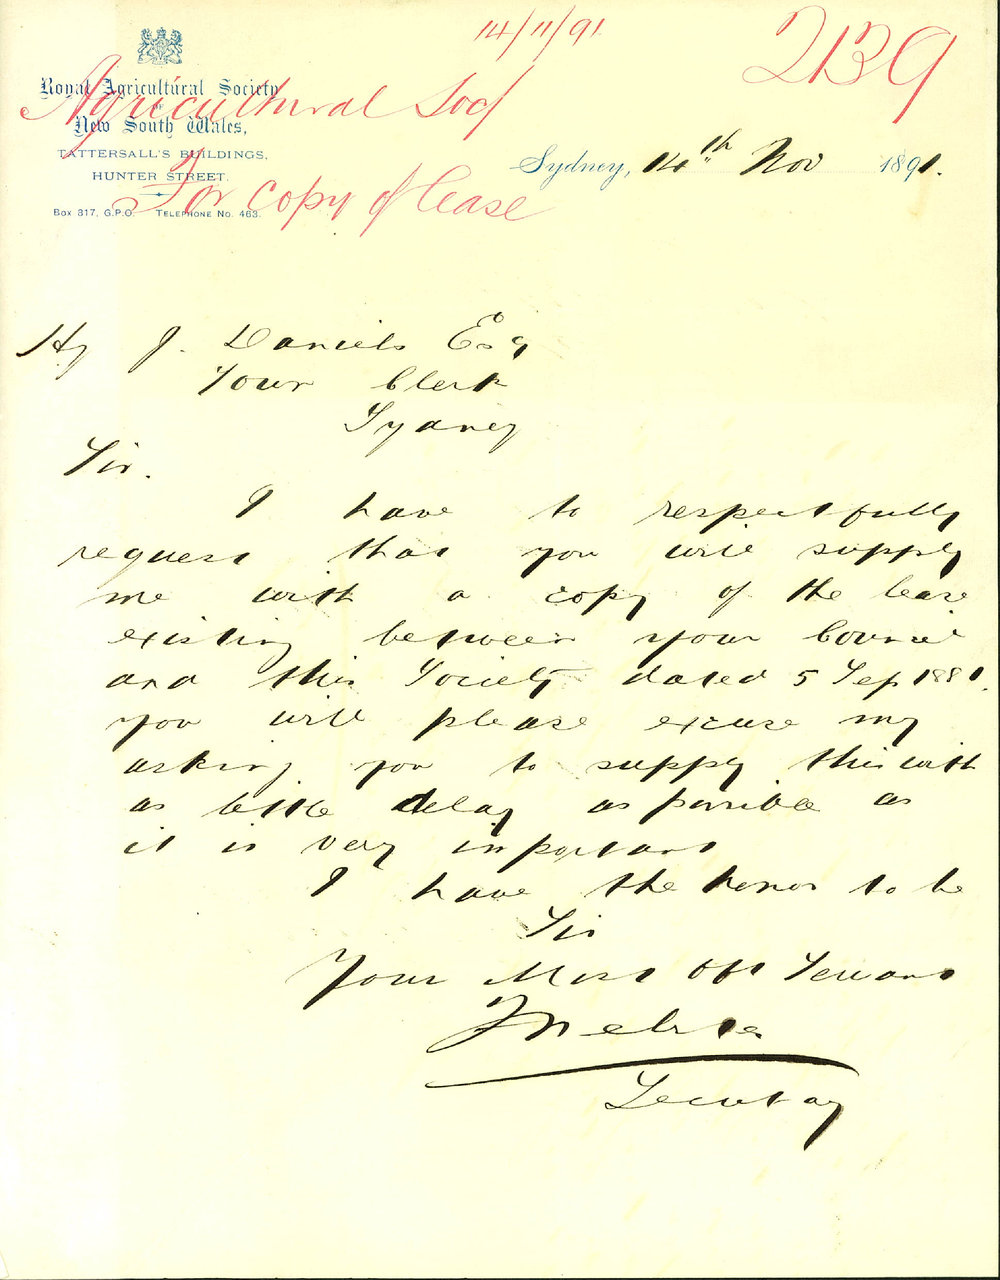 14/11/91
2139
Royal Agricultural Society
OF
New South Wales,
Agricultural Soc/
TATTERSALL'S BUILDINGS,
HUNTER STREET.
For copy of lease
Box 317, G.P.O. TELEPHONE No. 463.
Sydney, 14th Nov 1891.
Hy J. Daniels Esq
Town Clerk
Sydney
Sir.
I have to respectfully
request that you will supply
me with a copy of the lease
existing between your Council
and this Society dated 5 Sep 1881.
you will please excuse my
asking you to supply this with
as little delay as possible as
it is very important
I have the honor to be
Sir
Your Most Obt Servant
Secretary